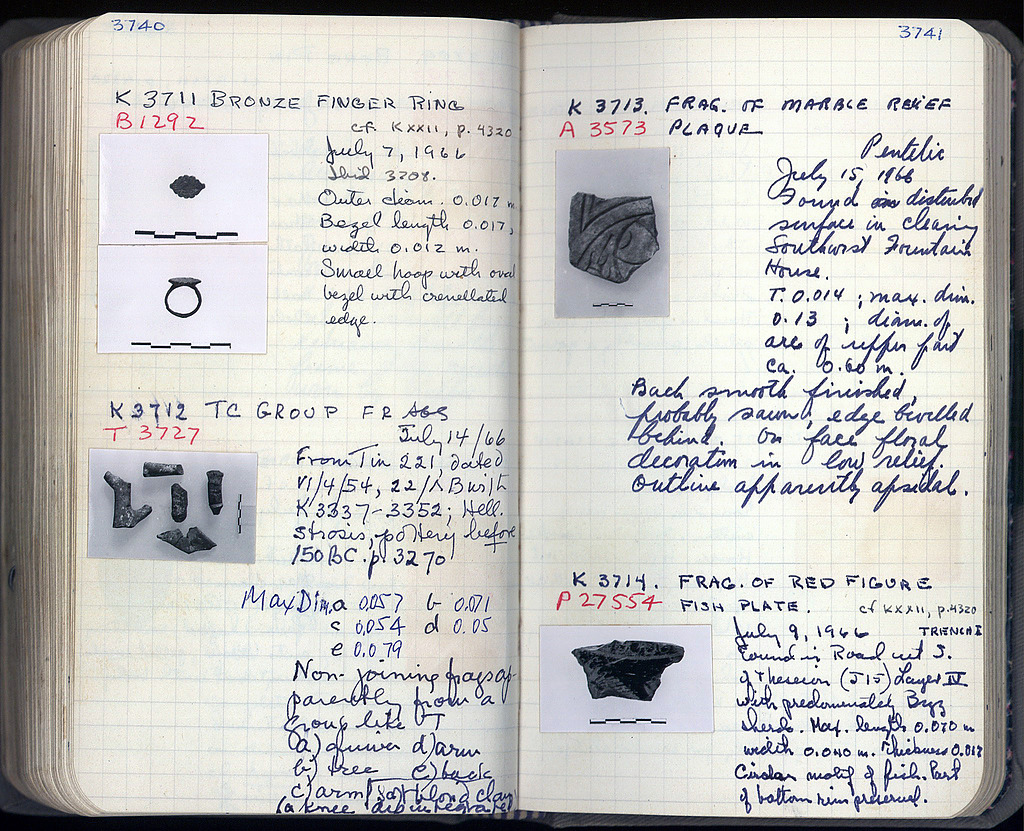 3740
K 3711 BRONZE FINGER RING
B 1292
cf. K XXII, p. 4320
July 7, 1966
3208.
Outer diam. 0.017 m
Bezel length 0.017,
width 0.012 m.
Small hoop with oval
bezel with crenellated
edge.
K 3712 TC GROUP FRAGS
T 3727
July 14/66
From Tin 221, dated
VI/4/54, 22/Λ B with
K 3337-3352; Hell.
strosis, pottery before
150 BC. p. 3270
Max Dim. a 0.057 b 0.071
c 0.054 d 0.05
e 0.079
Non-joining frags ap-
parently from a
group like T
(a) quiver d) arm
b) tree e) back
c) arm soft blond clay
(a knee disintegrated
3741
K 3713. FRAG. OF MARBLE RELIEF
A 3573 PLAQUE
Pentelic
July 15, 1966
Found in disturbed
surface in clearing
Southwest Fountain
House.
T. 0.014 ; max. dim.
0.13 ; diam. of
arc of upper part
ca. 0.60 m.
Back smooth finished,
probably sawn, edge bevelled
behind. On face floral
decoration in low relief.
Outline apparently apsidal.
K 3714. FRAG. OF RED FIGURE
P 27554 FISH PLATE. cf KXXII, p.4320
July 9, 1966 TRENCH I
Found in Road cut S.
of Theseion (J15) Layer IV
with predominately Byz
sherds. Max. length 0.070 m
width 0.040 m. Thickness 0.012
Circular motif of fish. Part
of bottom rim preserved.